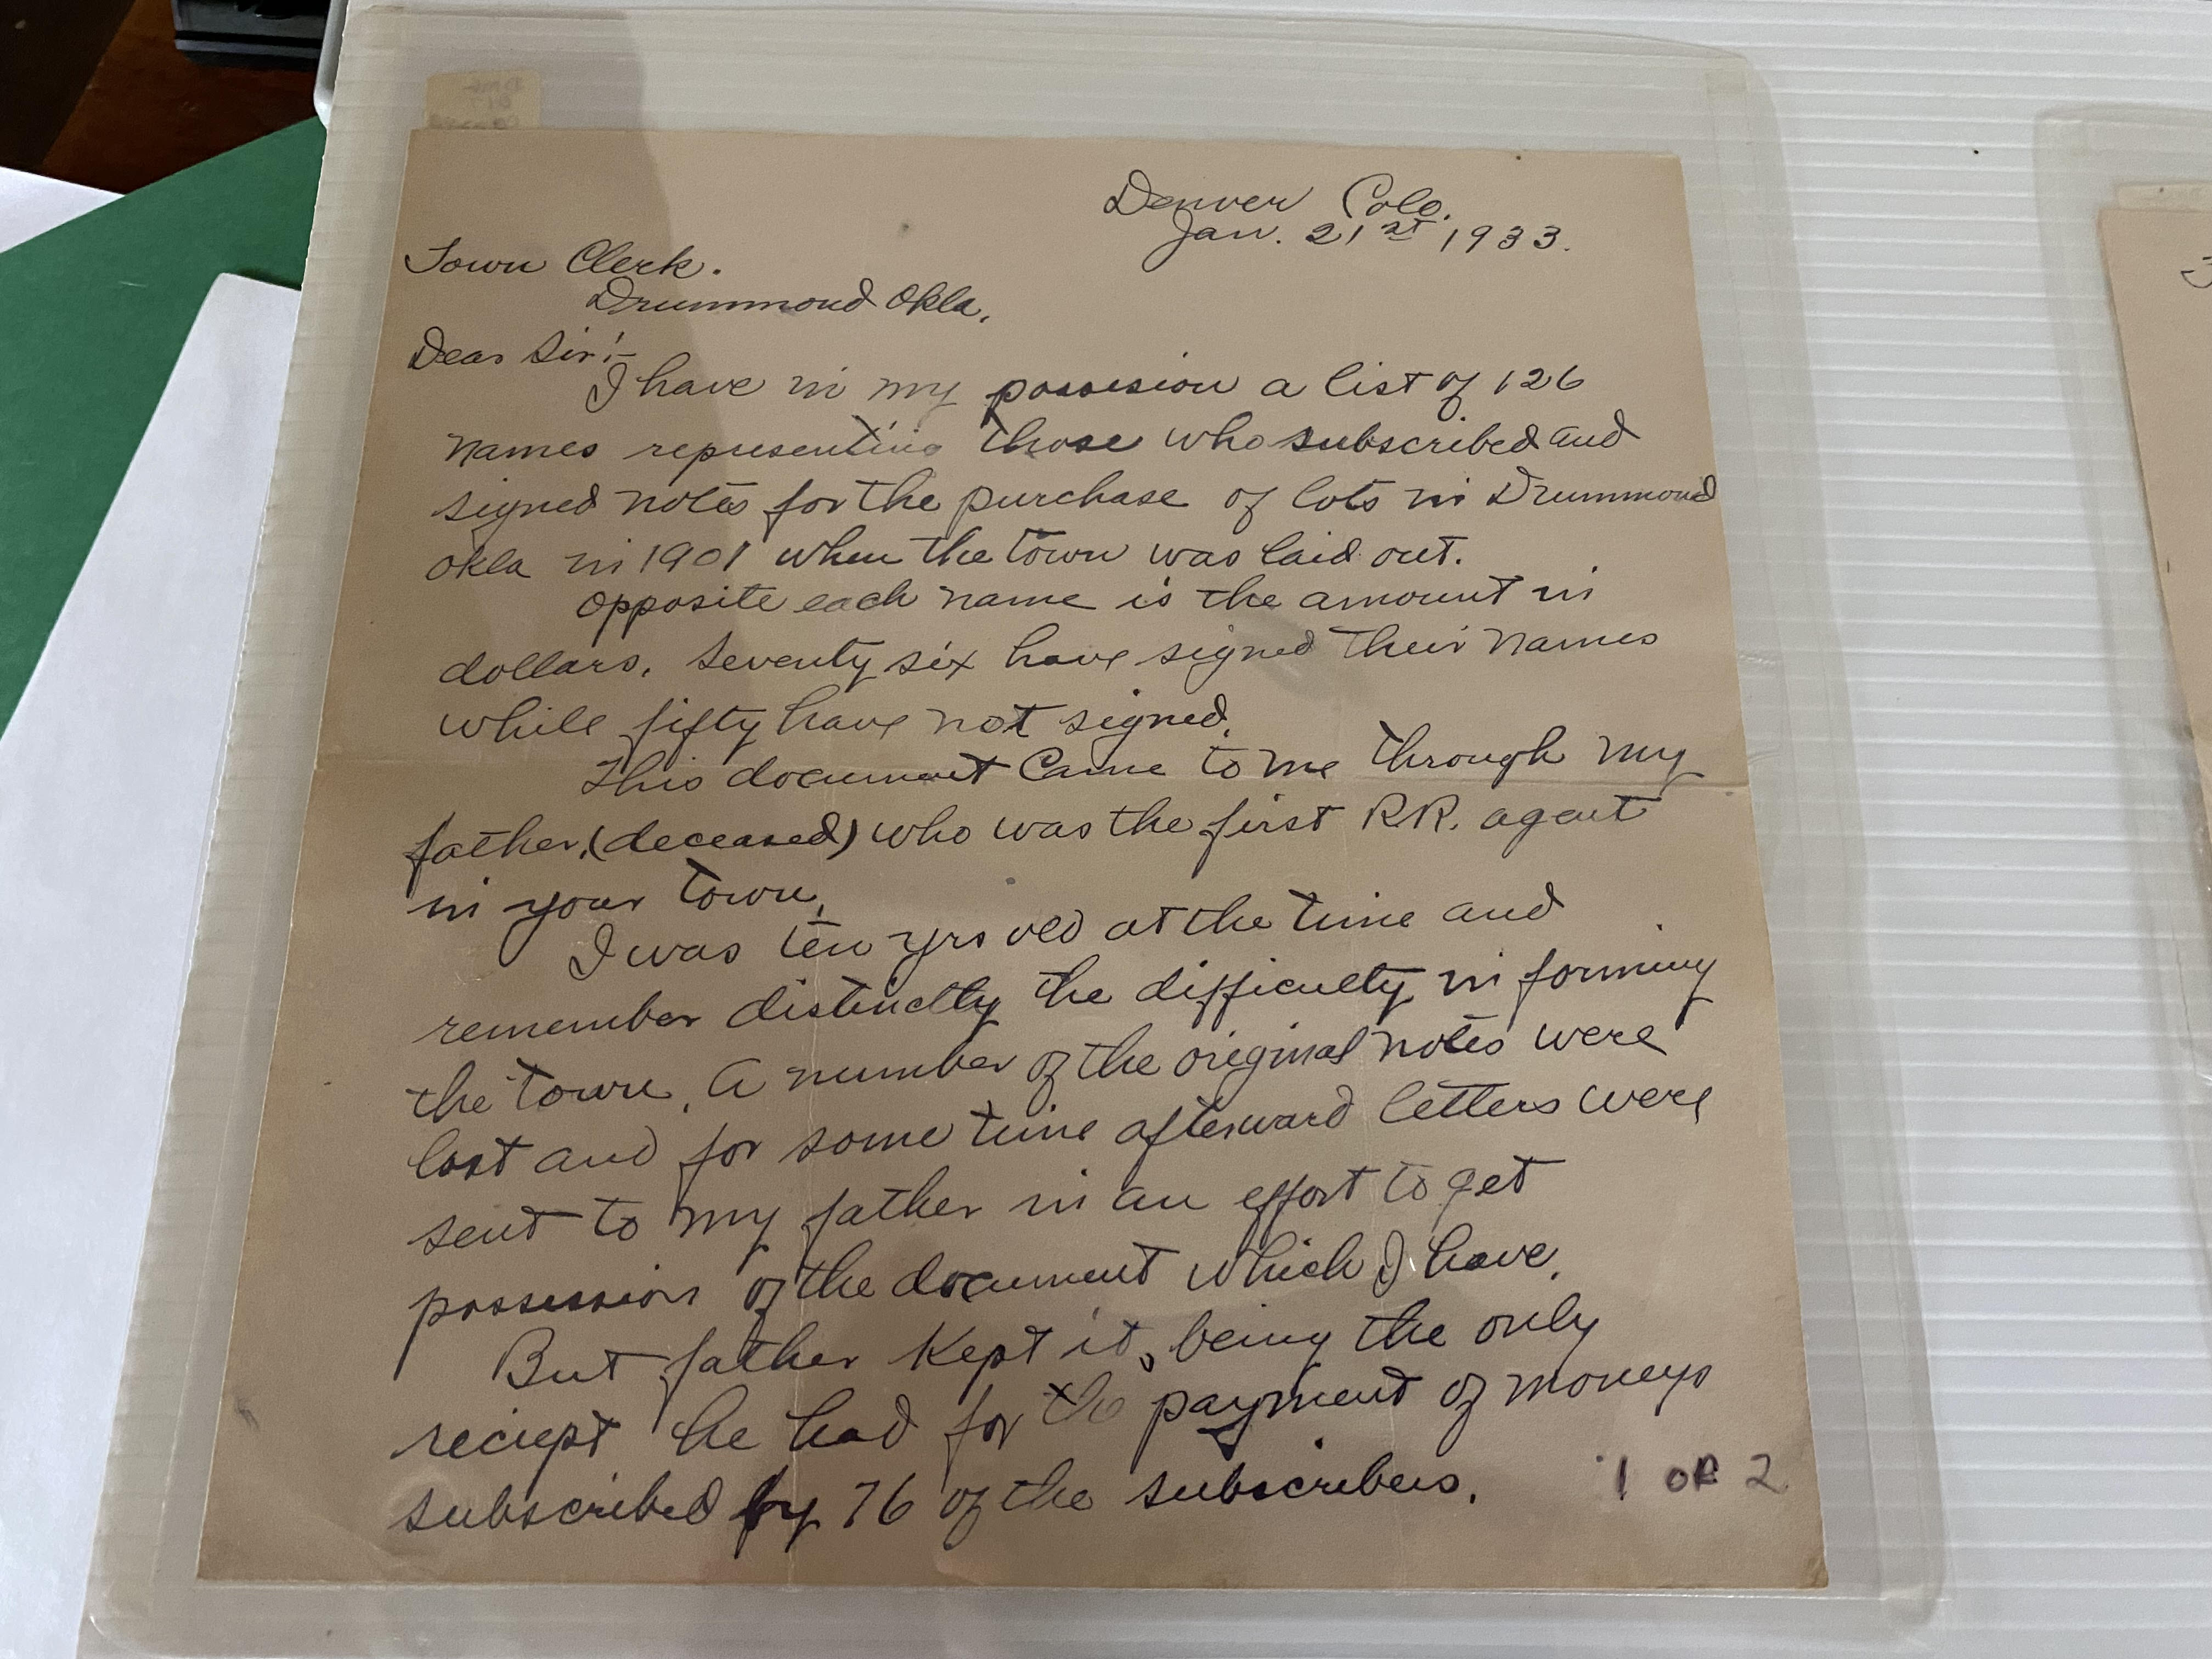 Denver Colo.
Jan. 21st, 1933.
Town Clerk.
Drummond Okla.
Dear Sir:-
I have in my possesion a list of 126
names representing those who subscribed and
signed notes for the purchase of lots in Drummond
Okla in 1901 when the town was laid out.
Opposite each name is the amount in
dollars. Seventy six have signed their names
while fifty have not signed.
This document came to me through my
father, (deceased) who was the first RR. agent
in your town.
I was ten yrs old at the time and
remember distinctly the difficulty in forming
the town. A number of the original notes were
lost and for some time afterward letters were
sent to my father in an effort to get
possession of the document which I have.
But father kept it, being the only
reciept he had for the payment of moneys
subscribed by 76 of the subscribers.
1 OF 2